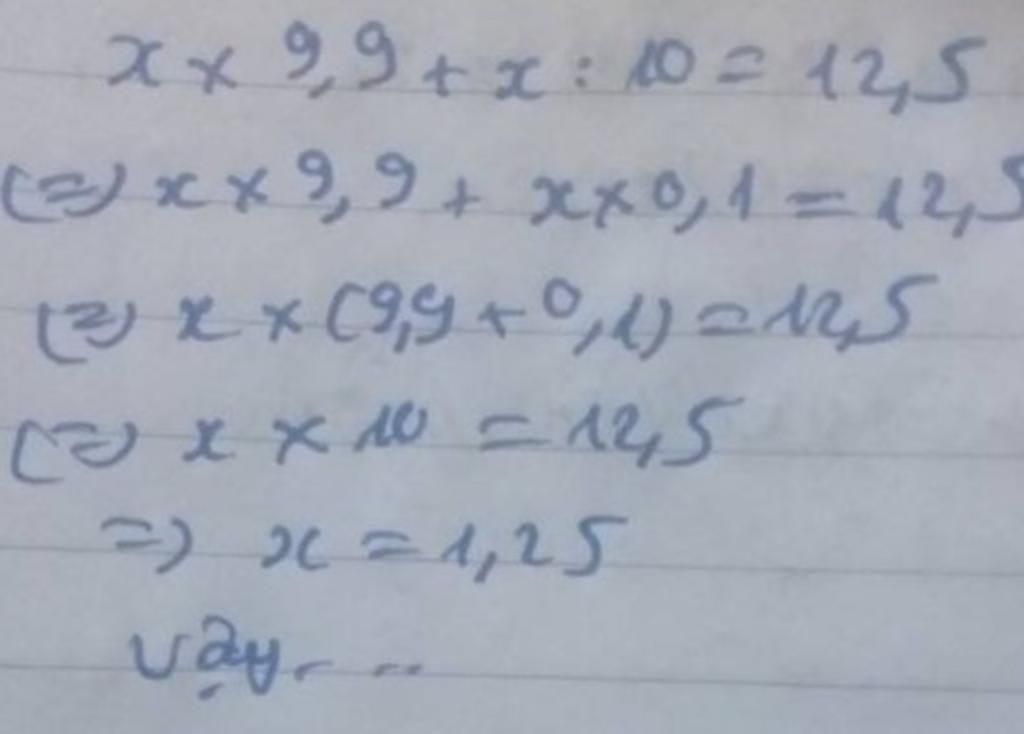 x × 9,9 + x : 10 = 12,5
(=) x × 9,9 + x × 0,1 = 12,5
(=) x × (9,9 + 0,1) = 12,5
(=) x × 10 = 12,5
=) x = 1,25
Vậy. ..